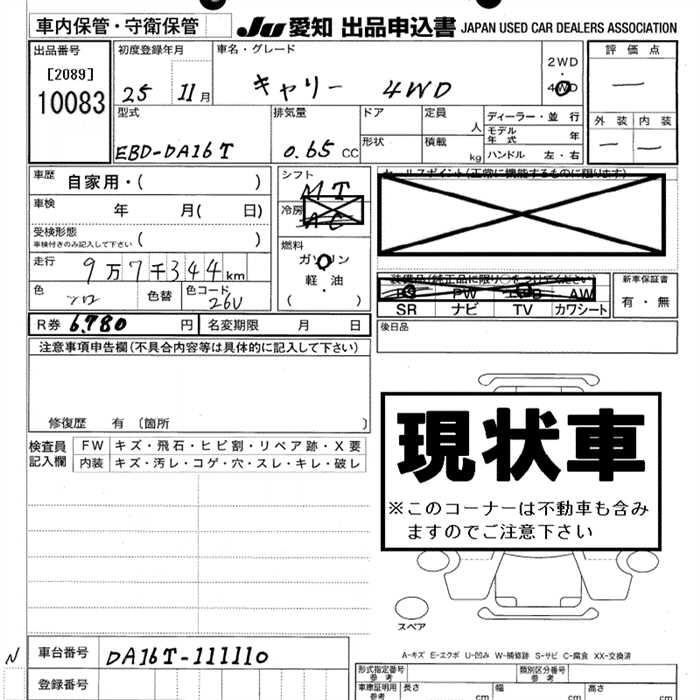 車内保管・守衛保管 JU 愛知 出品申込書 JAPAN USED CAR DEALERS ASSOCIATION
出品番号 初度登録年月 車名・グレード 評価点
[2089] 2WD
10083 25 11月 キャリー 4WD ・ 4WD 一
型式 排気量 ドア 定員 人 ディーラー・並行 外装 内装
モデル年式 年
EBD-DA16T 0.65 CC 形状 積載 kg ハンドル 左・右 一 一
車歴 自家用・( ) シフト MT セールスポイント(正常に機能するものに限ります)
車検 年 月( 日) 冷房 AC
受検形態 車検付きのみ記入して下さい ( ) 燃料
走行 9万7千344km ガソリン 装備品(純正品に限り○をつけてください) 新車保証書
軽油
色 ソロ 色替 色コード 26U ( ・ ) PS PW AW 有・無
SR ナビ TV カワシート
R券 6,780 円 名変期限 月 日 後日品
注意事項申告欄(不具合内容等は具体的に記入して下さい)
修復歴 有 〔箇所 〕
現状車
※このコーナーは不動車も含みますのでご注意下さい
検査員記入欄 FW キズ・飛石・ヒビ割・リペア跡・X要
内装 キズ・汚レ・コゲ・穴・スレ・キレ・破レ
スペア
N 車台番号 DA16T-111110
A-キズ E-エクボ U-凹み W-補修跡 S-サビ C-腐食 XX-交換済
登録番号
形式指定番号 参考 類別区分番号 参考
車庫証明用 参考 長さ cm 幅 cm 高さ cm